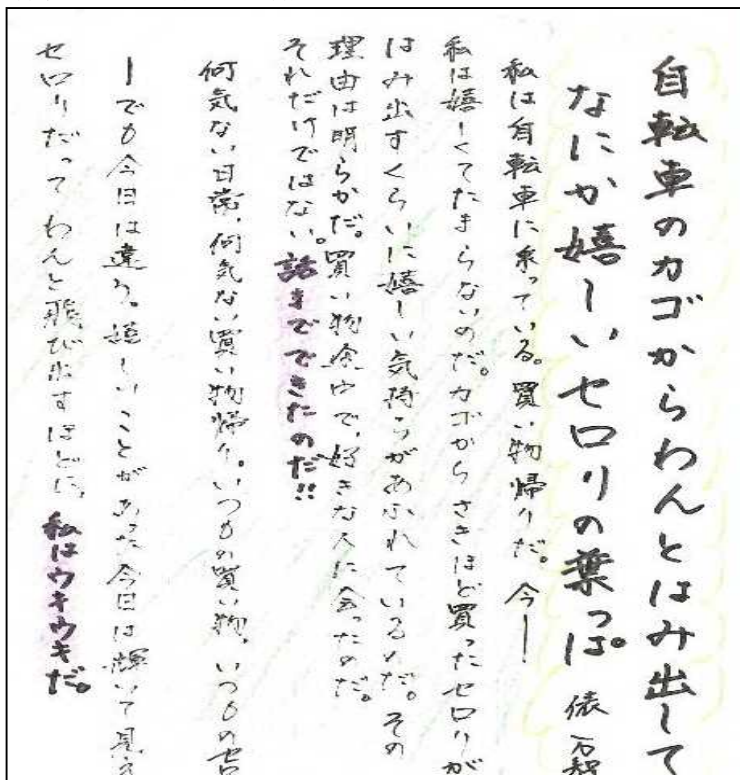 自転車のカゴからわんとはみ出して
なにか嬉しいセロリの葉っぱ。 俵 万智
私は自転車に乗っている。買い物帰りだ。今ー
私は嬉しくてたまらないのだ。カゴからさきほど買ったセロリが
はみ出すくらいに嬉しい気持ちがあふれているのだ。その
理由は明らかだ。買い物途中で、好きな人に会ったのだ。
それだけではない。話まで できたのだ!!
何気ない日常、何気ない買い物帰り。いつもの買い物。いつもの
ーでも今日は違う。嬉しいことがあった今日は輝いて見え
セロリだってわんと飛び出すほどに。私はウキウキだ。